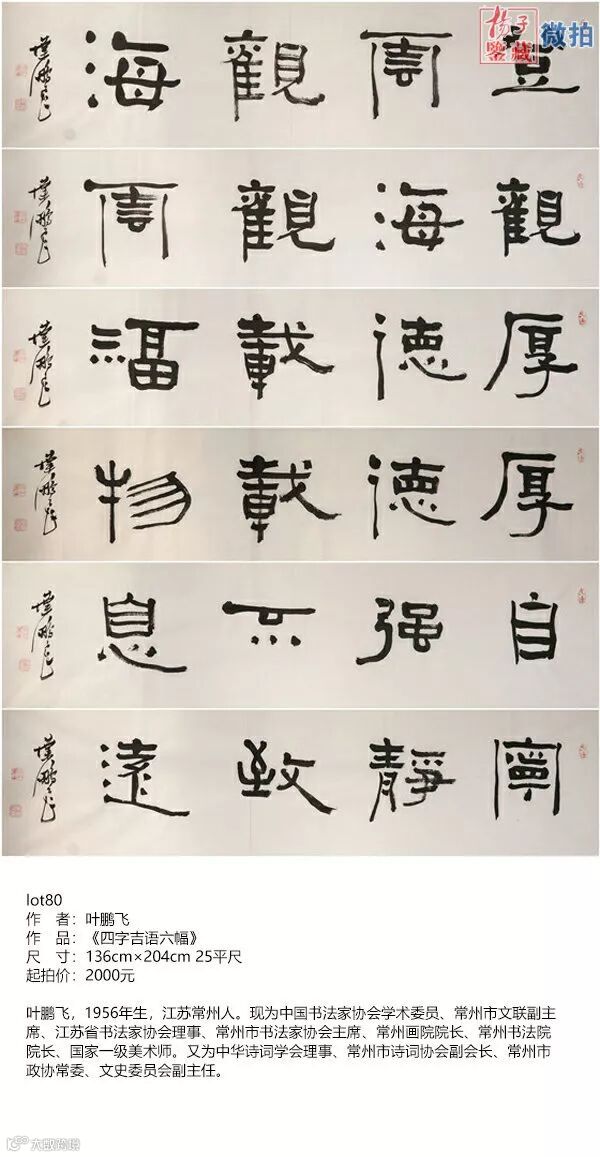 揚子
鑒藏
微拍
雲觀海
觀海觀雲
厚德載福
厚德載物
自强不息
寧靜致遠
lot80
作 者：叶鹏飞
作 品：《四字吉语六幅》
尺 寸：136cm×204cm 25平尺
起拍价：2000元
叶鹏飞，1956年生，江苏常州人。现为中国书法家协会学术委员、常州市文联副主
席、江苏省书法家协会理事、常州市书法家协会主席、常州画院院长、常州书法院
院长、国家一级美术师。又为中华诗词学会理事、常州市诗词协会副会长、常州市
政协常委、文史委员会副主任。
大数跨境